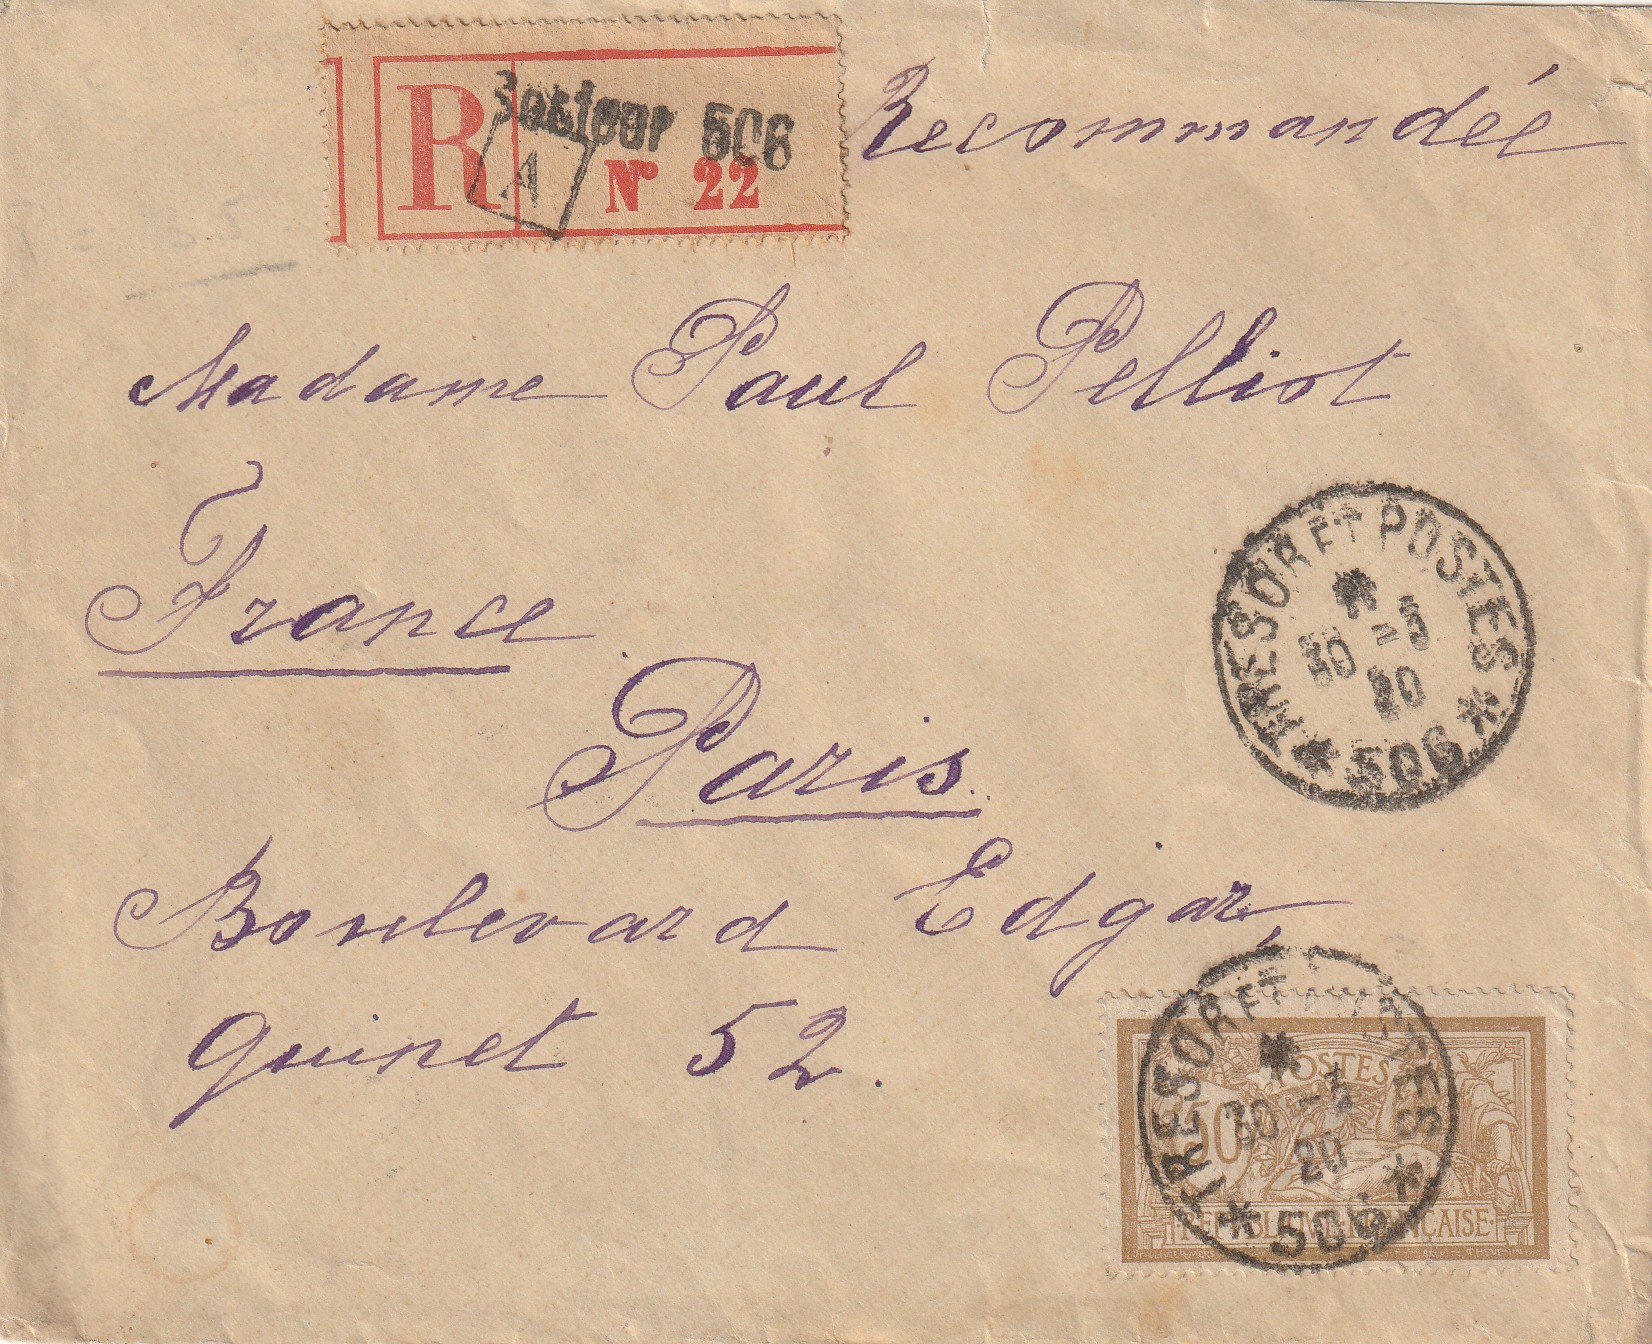 R
Secteur 506
A
N° 22
Recommandée
Madame Paul Pelliot
France
Paris
Boulevard Edgar,
Quinet 52.
TRESOR ET POSTES
30 -3
20
* 506 *
TRESOR ET POSTES
30 -3
20
* 506 *
POSTES
50
REPUBLIQUE FRANÇAISE